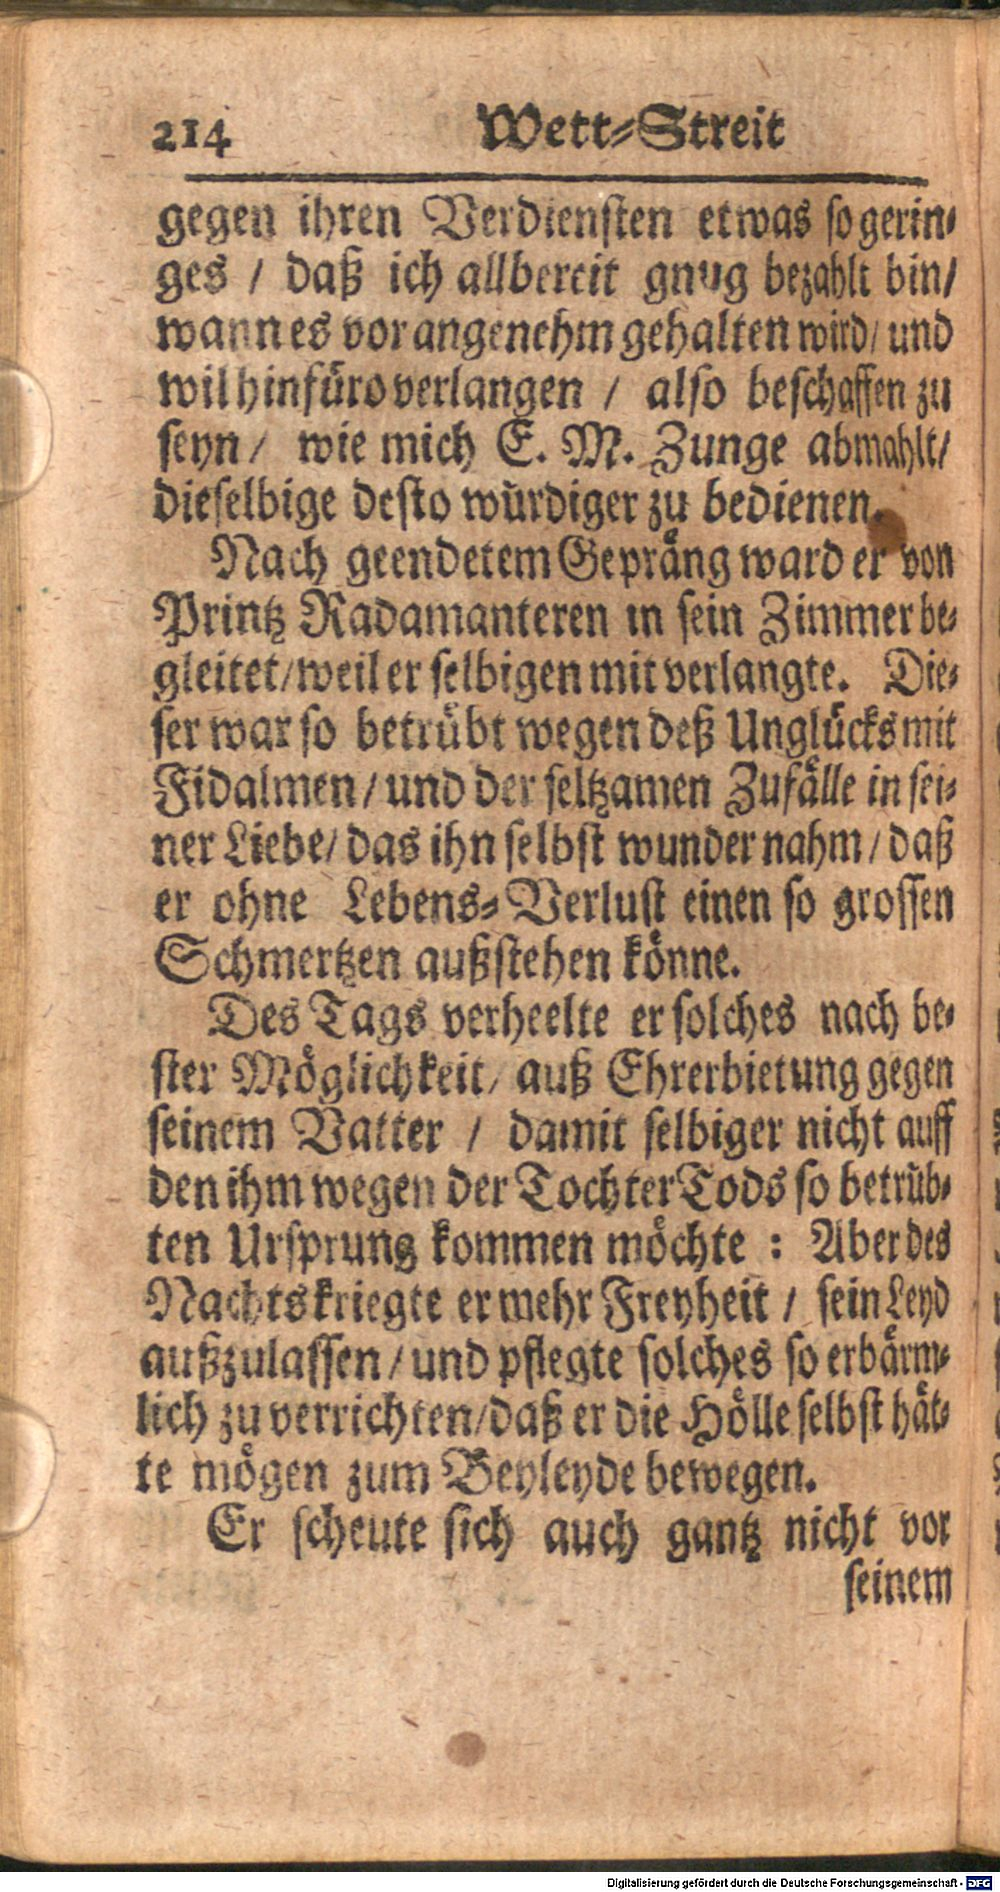 214 Wett-Streit
gegen ihren Verdiensten etwas so gerin-
ges / daß ich allbereit gnug bezahlt bin/
wann es vor angenehm gehalten wird/ und
wil hinfüro verlangen / also beschaffen zu
seyn / wie mich E. M. Zunge abmahlt/
dieselbige desto würdiger zu bedienen.
Nach geendetem Gepräng ward er von
Printz Radamanteren in sein Zimmer be-
gleitet/weil er selbigen mit verlangte. Die-
ser war so betrübt wegen deß Unglücks mit
Fidalmen / und der seltzamen Zufälle in sei-
ner Liebe/ das ihn selbst wunder nahm / daß
er ohne Lebens-Verlust einen so grossen
Schmertzen außstehen könne.
Des Tags verheelte er solches nach be-
ster Möglichkeit/ auß Ehrerbietung gegen
seinem Vatter / damit selbiger nicht auff
den ihm wegen der Tochter Tods so betrüb-
ten Ursprung kommen möchte : Aber des
Nachts kriegte er mehr Freyheit / sein Leyd
außzulassen / und pflegte solches so erbärm-
lich zu verrichten/daß er die Hölle selbst hät-
te mögen zum Beyleyde bewegen.
Er scheute sich auch gantz nicht vor
seinem
Digitalisierung gefördert durch die Deutsche Forschungsgemeinschaft - DFG